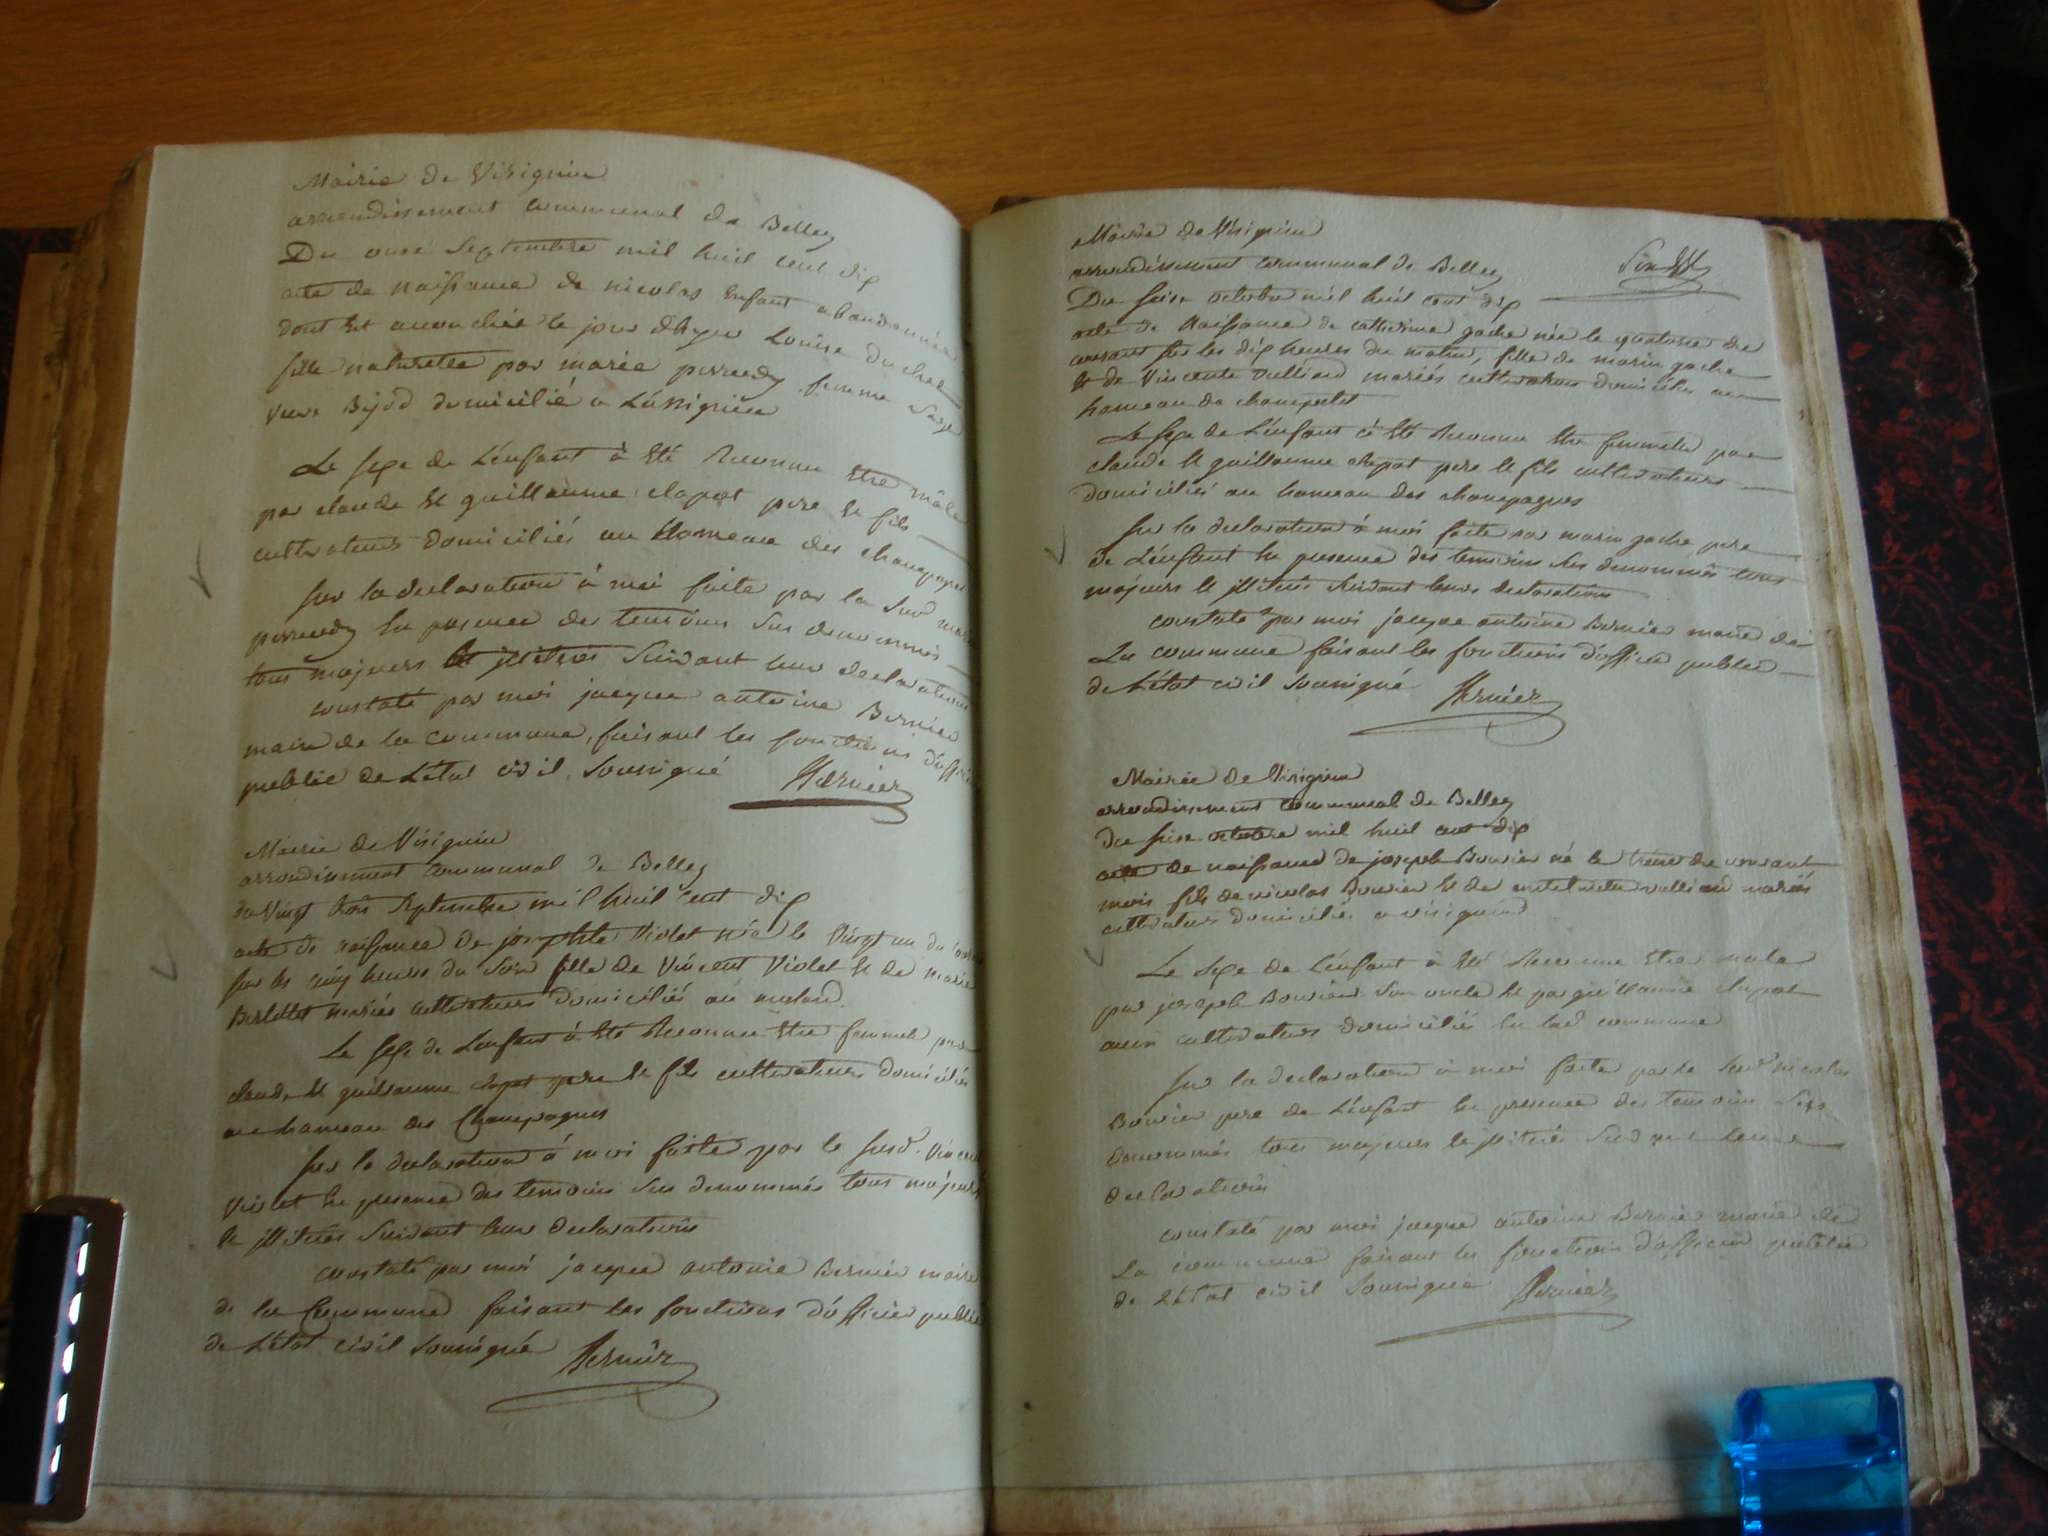 Mairie de Virignin
arrondissement communal de Belley
Du onze Septembre mil huit cent dix
acte de naissance de nicolas Enfant abandonné
dont Est accouchée le jour d'hyer Louise du
fille naturelle par marie perrendy femme Sage
veuve Bijod domicilié a
Le Sexe de L'enfant à Eté Reconnu Etre mâle
par claude Et guillaume clapot pere Et fils
cultivateurs domiciliés au hameau des champagnes
Sur la declaration à moi faite par la Susd marie
perrendy En presence des temoins Sus denommés
tous majeurs Et illitrés Suivant leur declaration
constaté par moi jacque antoine Bernier
maire de la commune, faisant les fonctions d'officier
public de L'état civil Soussigné Bernier
Mairie de Virignin
arrondissement communal de Belley
du Vingt trois Septembre mil huit cent dix
acte de naissance de josephte Violet née le Vingt un du
Sur les cinq heures du Soir fille de Vincent Violet Et de marie
Berlittet mariés cultivateurs domiciliés au
Le Sexe de L'enfant à Eté Reconnu Etre femmele par
claude Et guillaume clapot pere Et fils cultivateurs domiciliés
au hameau des Champagnes
Sur la declaration à moi faite par le Susd. Vincent
Violet En presence des temoins Sus denommés tous majeurs
Et illitrés Suivant leur declaration
constaté par moi jacque antoine Bernier maire
de la Commune faisant les fonctions d'officier public
de L'état civil Soussigné Bernier
Mairie de Virignin
arrondissement communal de Belley
Du Seize octobre mil huit cent dix
acte de Naissance de catherine gache née le quatorze du
courant Sur les dix heures du matin, fille de marin gache
Et de Vincente Vulliand mariés cultivateurs domiciliés au
hameau de
Le Sexe de L'enfant à Eté Reconnu Etre femmele par
claude Et guillaume clapot pere Et fils cultivateurs
domiciliés au hameau des champagnes
Sur la declaration à moi faite par marin gache pere
de L'enfant En presence des temoins Sus denommés tous
majeurs Et illitrés Suivant leurs declaration
constaté par moi jacque antoine Bernier maire de
La commune faisant les fonctions d'officier public
de L'état civil Soussigné Bernier
Mairie de Virignin
arrondissement communal de Belley
du Seize octobre mil huit cent dix
acte de naissance de joseph Bouvier né le treize du courant
mois fils de nicolas Bouvier Et de vulliand mariés
cultivateurs domiciliés a virignin
Le Sexe de L'enfant à Eté Reconnu Etre male
par joseph Bouvier Son oncle Et par guillaume clapot
aussi cultivateurs domiciliés En lad commune
Sur la declaration à moi faite par le Susd nicolas
Bouvier pere de L'enfant En presence des temoins Sus
denommés tous majeurs Et illitrés Suivant leur
declaration
constaté par moi jacque antoine Bernier maire de
La commune faisant les fonctions d'officier public
de L'état civil Soussigné Bernier